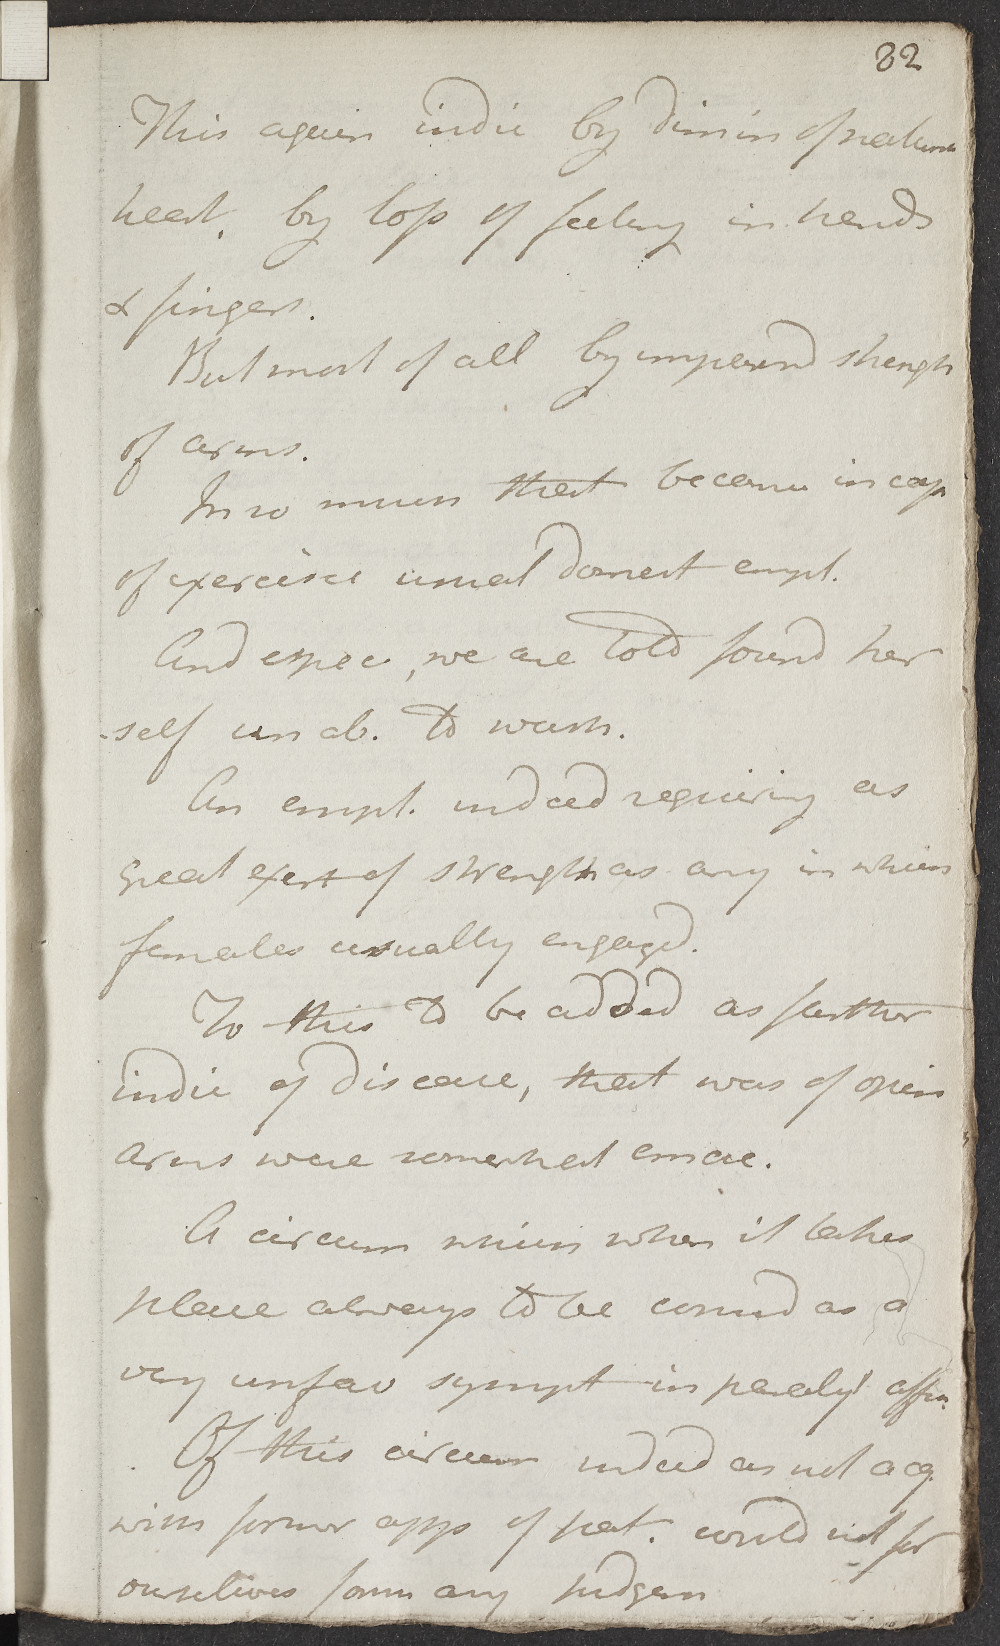 82
This again indic by dimin of natura
heat, by loss of feeling in hands
& fingers.
But most of all by impaird strength
of arms.
In so much that became incap
of exercise usual domest empl.
And espec, we are told found her
-self unab. to wash.
An empl. indeed requiring as
great exert of strength as any in which
females usually engaged.
To this to be added as farther
indic of disease, that was of opin
arms were somewhat emac.
A circum which when it takes
place always to be consid as a
very unfav sympt in paralyt affn.
Of this circum indeed as not acq.
with former apps of pat. could not for
ourselves form any judgem